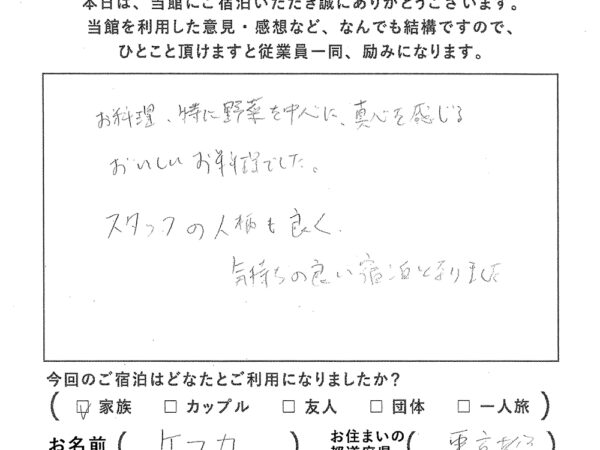 本日は、当館にご宿泊いただき誠にありがとうございます。
当館を利用した意見・感想など、なんでも結構ですので、
ひとこと頂けますと従業員一同、励みになります。
お料理、特に野菜を中心に、真心を感じる
おいしいお料理でした。
スタッフの人柄も良く、
気持ちの良い宿泊となりました
今回のご宿泊はどなたとご利用になりましたか?
( ☑ 家族 □ カップル □ 友人 □ 団体 □ 一人旅 )
お名前 ( ) お住まいの都道府県 ( 東京都